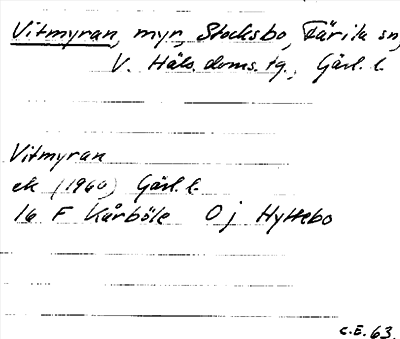 Vitmyran, myr, Stocksbo, Färila sn,
V. Häls. doms. tg., Gävl. l.
Vitmyran
ek (1960) Gävl. l.
16 F Kårböle 0 j Hyttebo
C.E. 63.